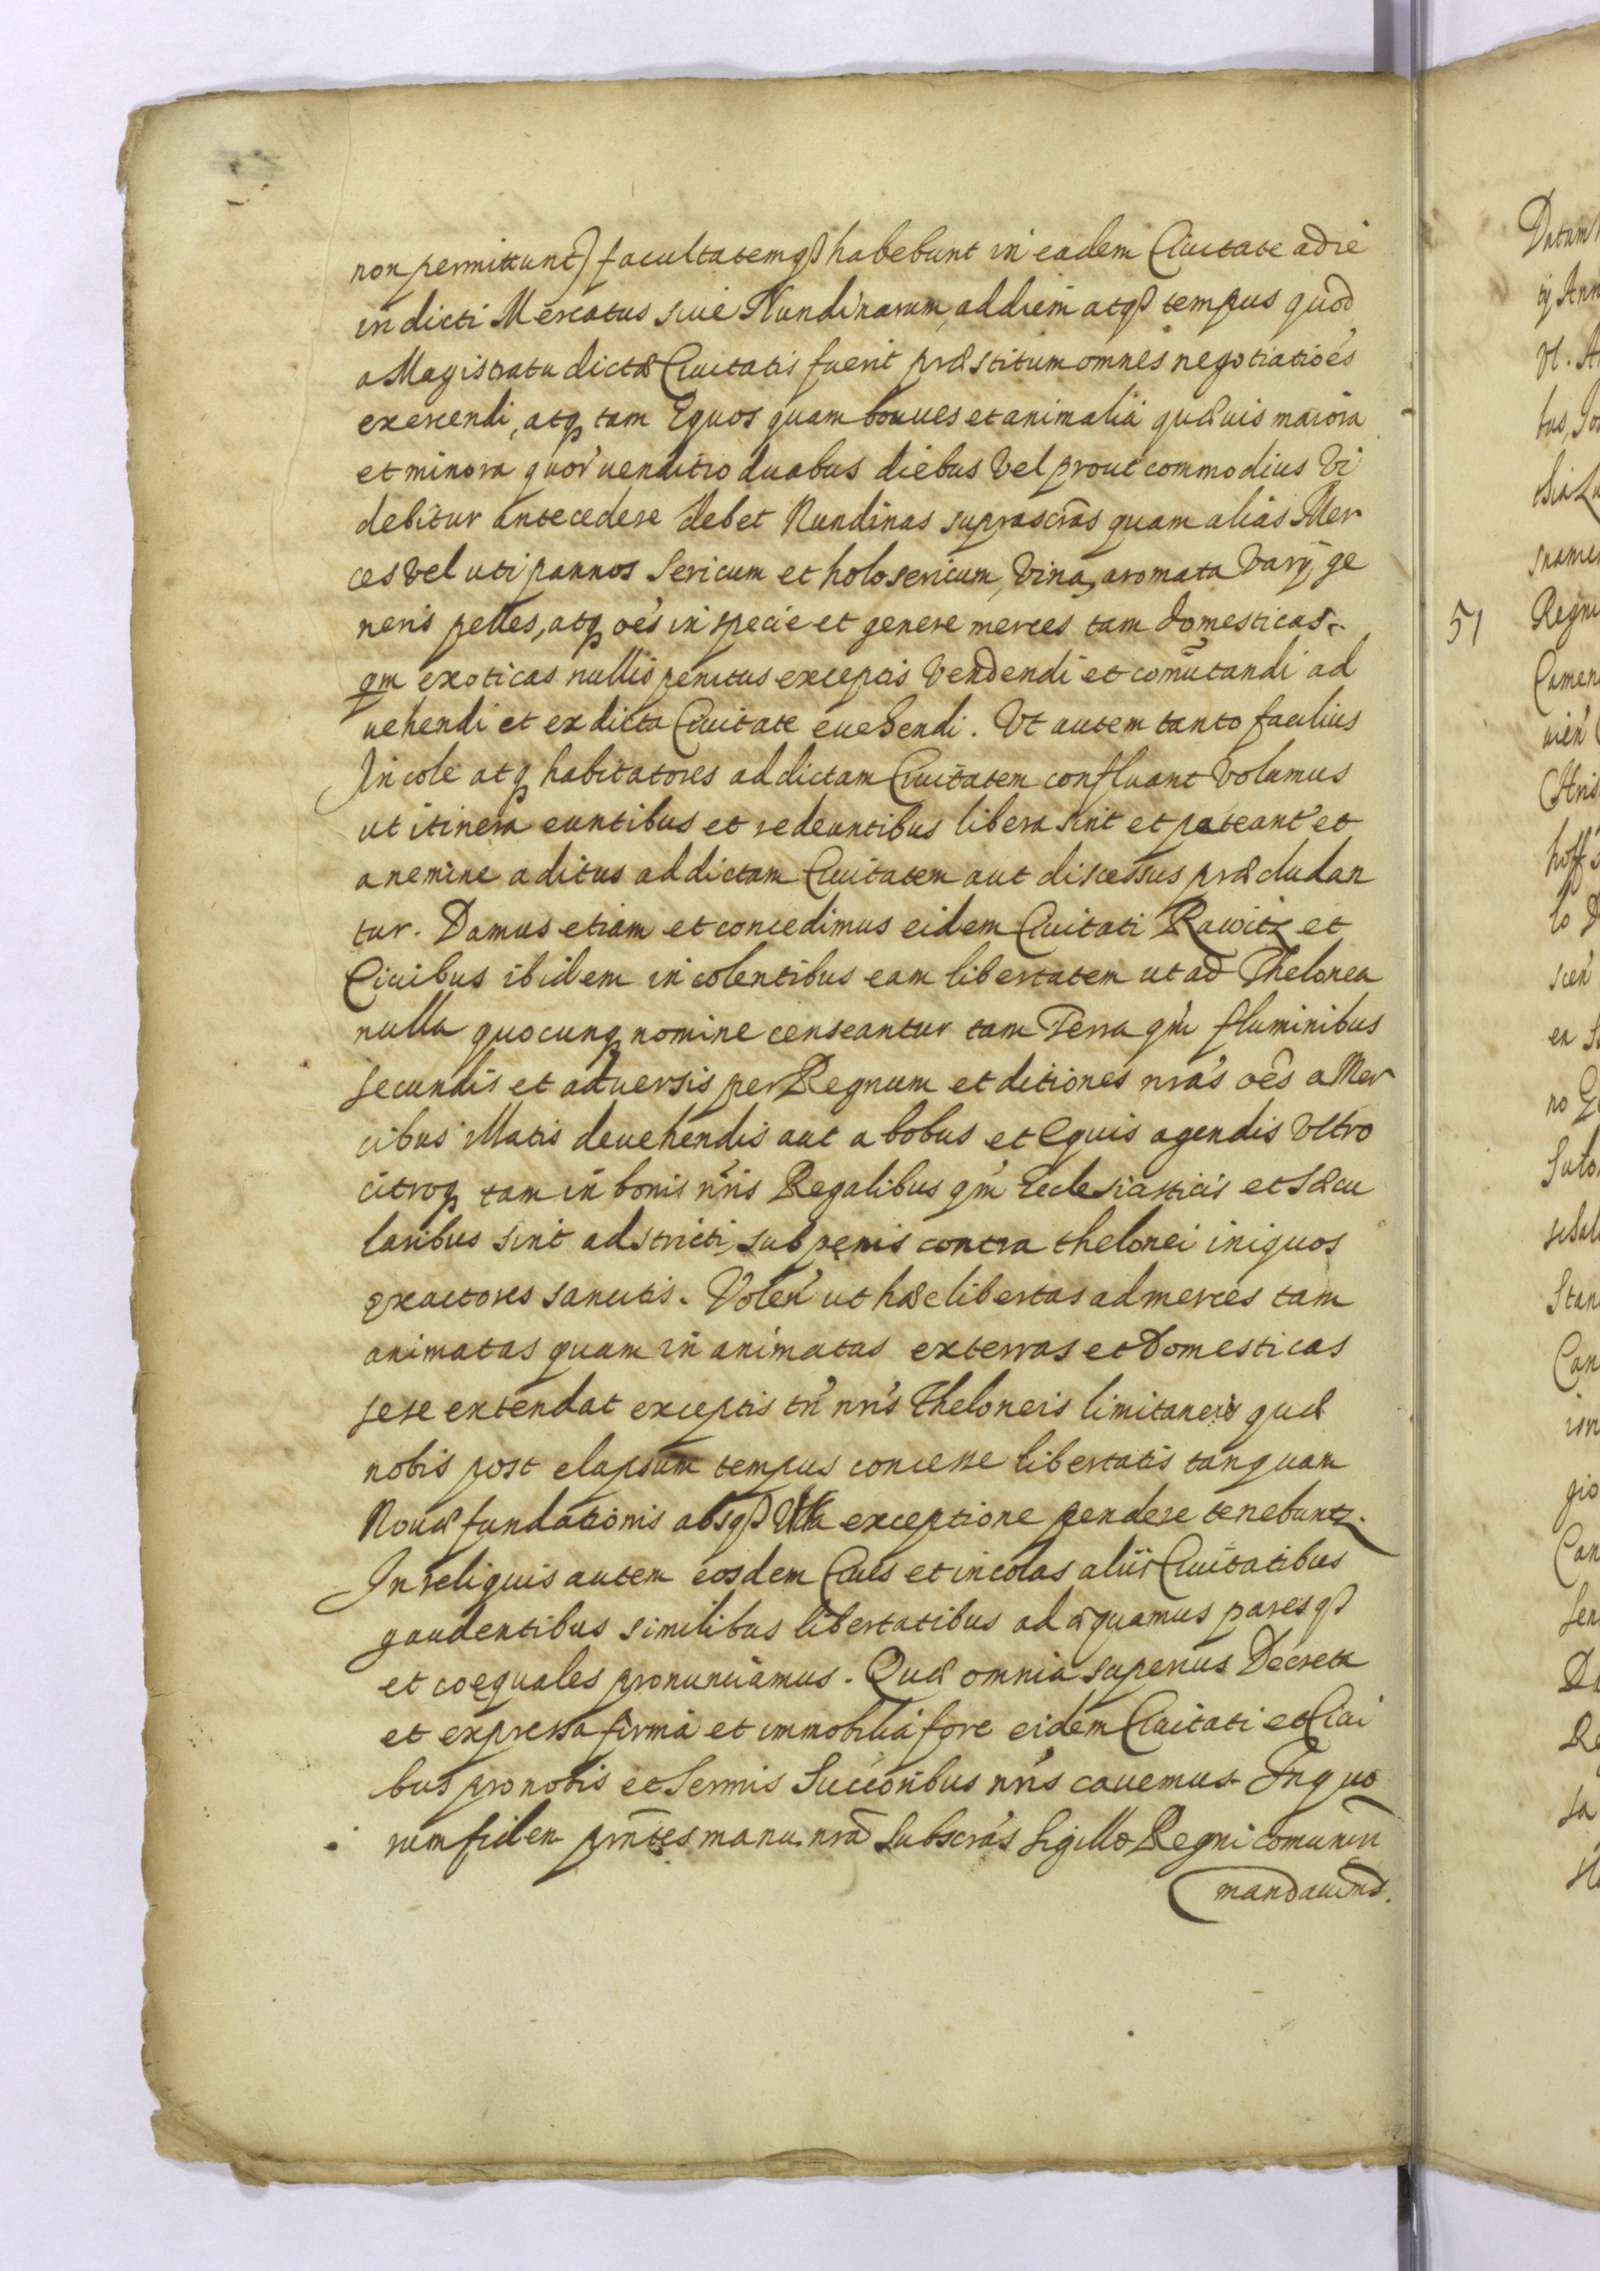 non permittunt) facultatemq3 habebunt in eadem Ciuitate ad rē
in dicti Mercatus siue Nundinarum, ad diem atq3 tempus quod
a Magistratu dictæ Ciuitatis fuerit præstitum omnes negotiatiões
exercendi, atq3 tam Equos quam boues et animalia quæuis maiora
et minora quor' uenditio duabus diebus vel prout commodius vi
debitur antecedere debet Nundinas suprascrās quam alias Mer
ces vel uti pannos sericum et holosericum, vina, aromata varÿ, ge
neris pelles, atq3 oēs in specie et genere merces tam domesticas
qm exoticas nullis penitus exceptis vendendi et comutandi ad
uehendi et ex dicta Ciuitate euehendi. Vt autem tanto facilius
Incole atq3 habitatores ad dictam Ciuitatem confluant volumus
ut itinera euntibus et redeuntibus libera sint et pateant et
a nemine aditus ad dictam Ciuitatem aut discessus præcludan
tur. Damus etiam et concedimus eidem Ciuitati Rawitz et
Ciuibus ibidem incolentibus eam libertatem ut ad Thelonea
nulla quocunq3 nomine censeantur tam Terra qm fluminibus
secundis et aduersis per Regnum et ditiones nrās oēs a Mer
cibus illatis deuehendis aut a bobus et Equis agendis vltro
citroq3 tam in bonis nris Regalibus qm Ecclesiasticis et sæcu
laribus sint adstricti, sub penis contra thelonei iniquos
exactores sancitis. Volen' ut hæc libertas ad merces tam
animatas quam in animatas externas et Domesticas
sese extendat exceptis tn' nris Theloneis limitaneis quæ
nobis post elapsum tempus concesse libertatis tanquam
Nouæ fundationis absq3 vlla exceptione pendere tenebuntz.
In reliquis autem eosdem Ciues et incolas aliis Ciuitatibus
gaudentibus similibus libertatibus adæquamus paresq3
et coequales pronunciamus. Quæ omnia superius Decreta
et expressa firma et immobilia fore eidem Ciuitati et Ciui
bus pro nobis et Sermis Succoribus nris cauemus. In quo
rum fidem prntes manu nrā subscrās sigillo Regni comunin
mandauims.
51
Datum
Regni